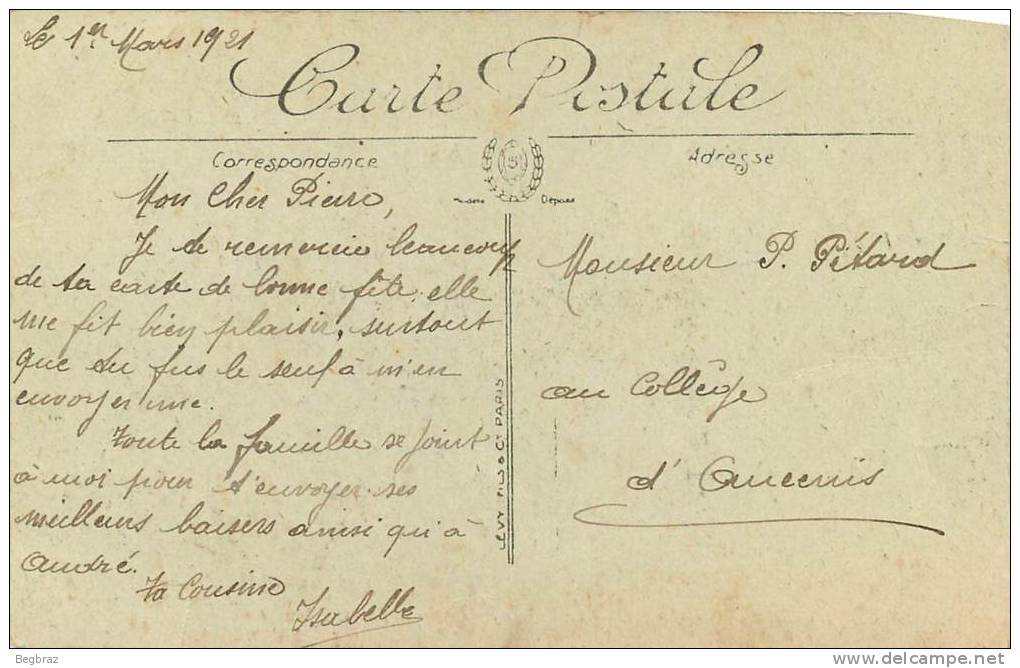 Le 1er Mars 1921
Carte Postale
Correspondance
Adresse
Mon Cher Pierre,
Je te remercie beaucoup
de ta carte de bonne fête, elle
me fit bien plaisir, surtout
que tu fus le seul à m'en
envoyer une.
Toute la famille se joint
à moi pour t'envoyer ses
meilleurs baisers ainsi qu'à
André.
Ta Cousine
Isabelle
Monsieur P. Pétard
au Collège
d'Ancenis
LEVY FILS & Cie PARIS
Begbraz
delcampe.net